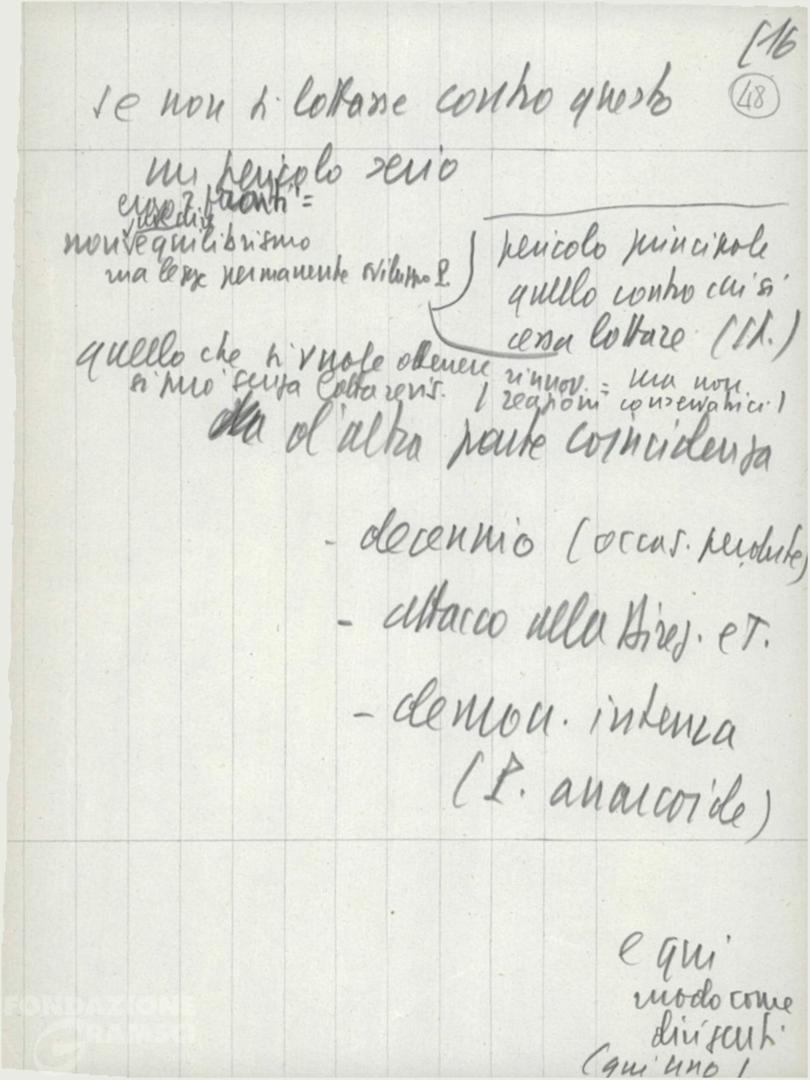 [16
48
se non si lottasse contro questo
un pericolo serio
2 fronti =
non equilibrismo
ma legge permanente sviluppo P.
pericolo principale
quello contro cui si
cessa lottare (St.)
quello che si vuole ottenere rinnov. = ma non
si può senza lotta revis. ( reazioni conservatrici )
d'altra parte coincidenza
- decennio (occas. perdute)
- attacco alla direz. e T.
- demon. intensa
(P. anarcoide)
e qui
modo come
dirigenti
(qui uno
FONDAZIONE
GRAMSCI